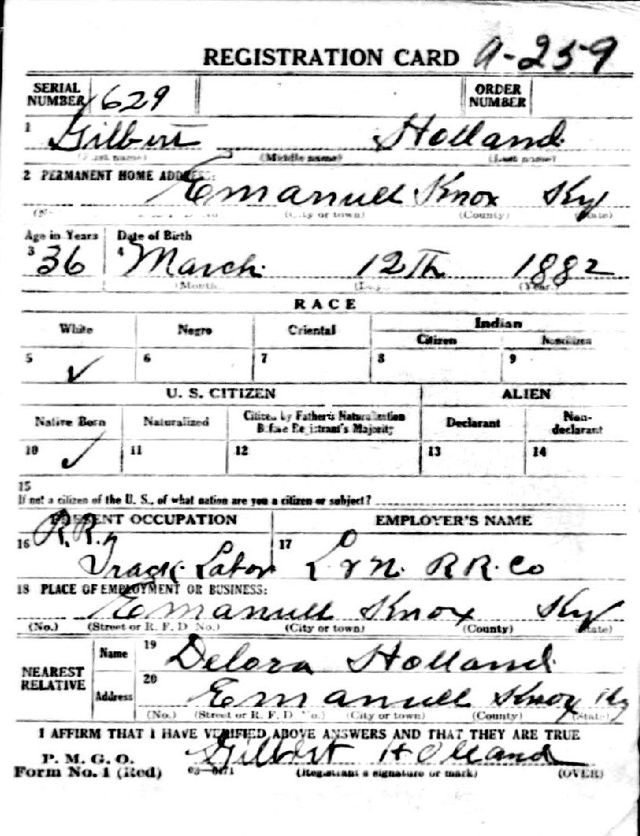 REGISTRATION CARD A-259
SERIAL NUMBER 629 ORDER NUMBER
1 Gilbert Holland
(First name) (Middle name) (Last name)
2 PERMANENT HOME ADDRESS:
Emanuell Knox Ky
(City or town) (County) (State)
Age in Years Date of Birth
3 36 4 March 12Th 1882
(Month) (Day) (Year)
RACE
White Negro Oriental Indian
Citizen Noncitizen
5 ✓ 6 7 8 9
U. S. CITIZEN ALIEN
Native Born Naturalized Citizen by Father's Naturalization Before Registrant's Majority Declarant Non-declarant
10 ✓ 11 12 13 14
15
If not a citizen of the U. S., of what nation are you a citizen or subject?
PRESENT OCCUPATION EMPLOYER'S NAME
16 R.R. Track Labor 17 L & N. R.R. Co
18 PLACE OF EMPLOYMENT OR BUSINESS:
Emanuell Knox Ky
(No.) (Street or R. F. D. No.) (City or town) (County) (State)
NEAREST RELATIVE
Name 19 Delora Holland
Address 20 Emanuell Knox Ky
(No.) (Street or R. F. D. No.) (City or town) (County) (State)
I AFFIRM THAT I HAVE VERIFIED ABOVE ANSWERS AND THAT THEY ARE TRUE
P. M. G. O.
Form No. 1 (Red) Gilbert Holland
(Registrant's signature or mark) (OVER)